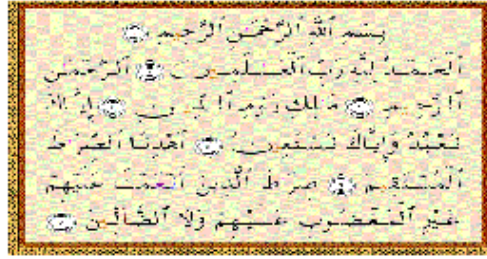 بِسْمِ ٱللَّهِ ٱلرَّحْمَـٰنِ ٱلرَّحِيمِ ۝
ٱلْحَمْدُ لِلَّهِ رَبِّ ٱلْعَـٰلَمِينَ ۝ ٱلرَّحْمَـٰنِ
ٱلرَّحِيمِ ۝ مَـٰلِكِ يَوْمِ ٱلدِّينِ ۝ إِيَّاكَ
نَعْبُدُ وَإِيَّاكَ نَسْتَعِينُ ۝ ٱهْدِنَا ٱلصِّرَٰطَ
ٱلْمُسْتَقِيمَ ۝ صِرَٰطَ ٱلَّذِينَ أَنْعَمْتَ عَلَيْهِمْ
غَيْرِ ٱلْمَغْضُوبِ عَلَيْهِمْ وَلَا ٱلضَّآلِّينَ ۝